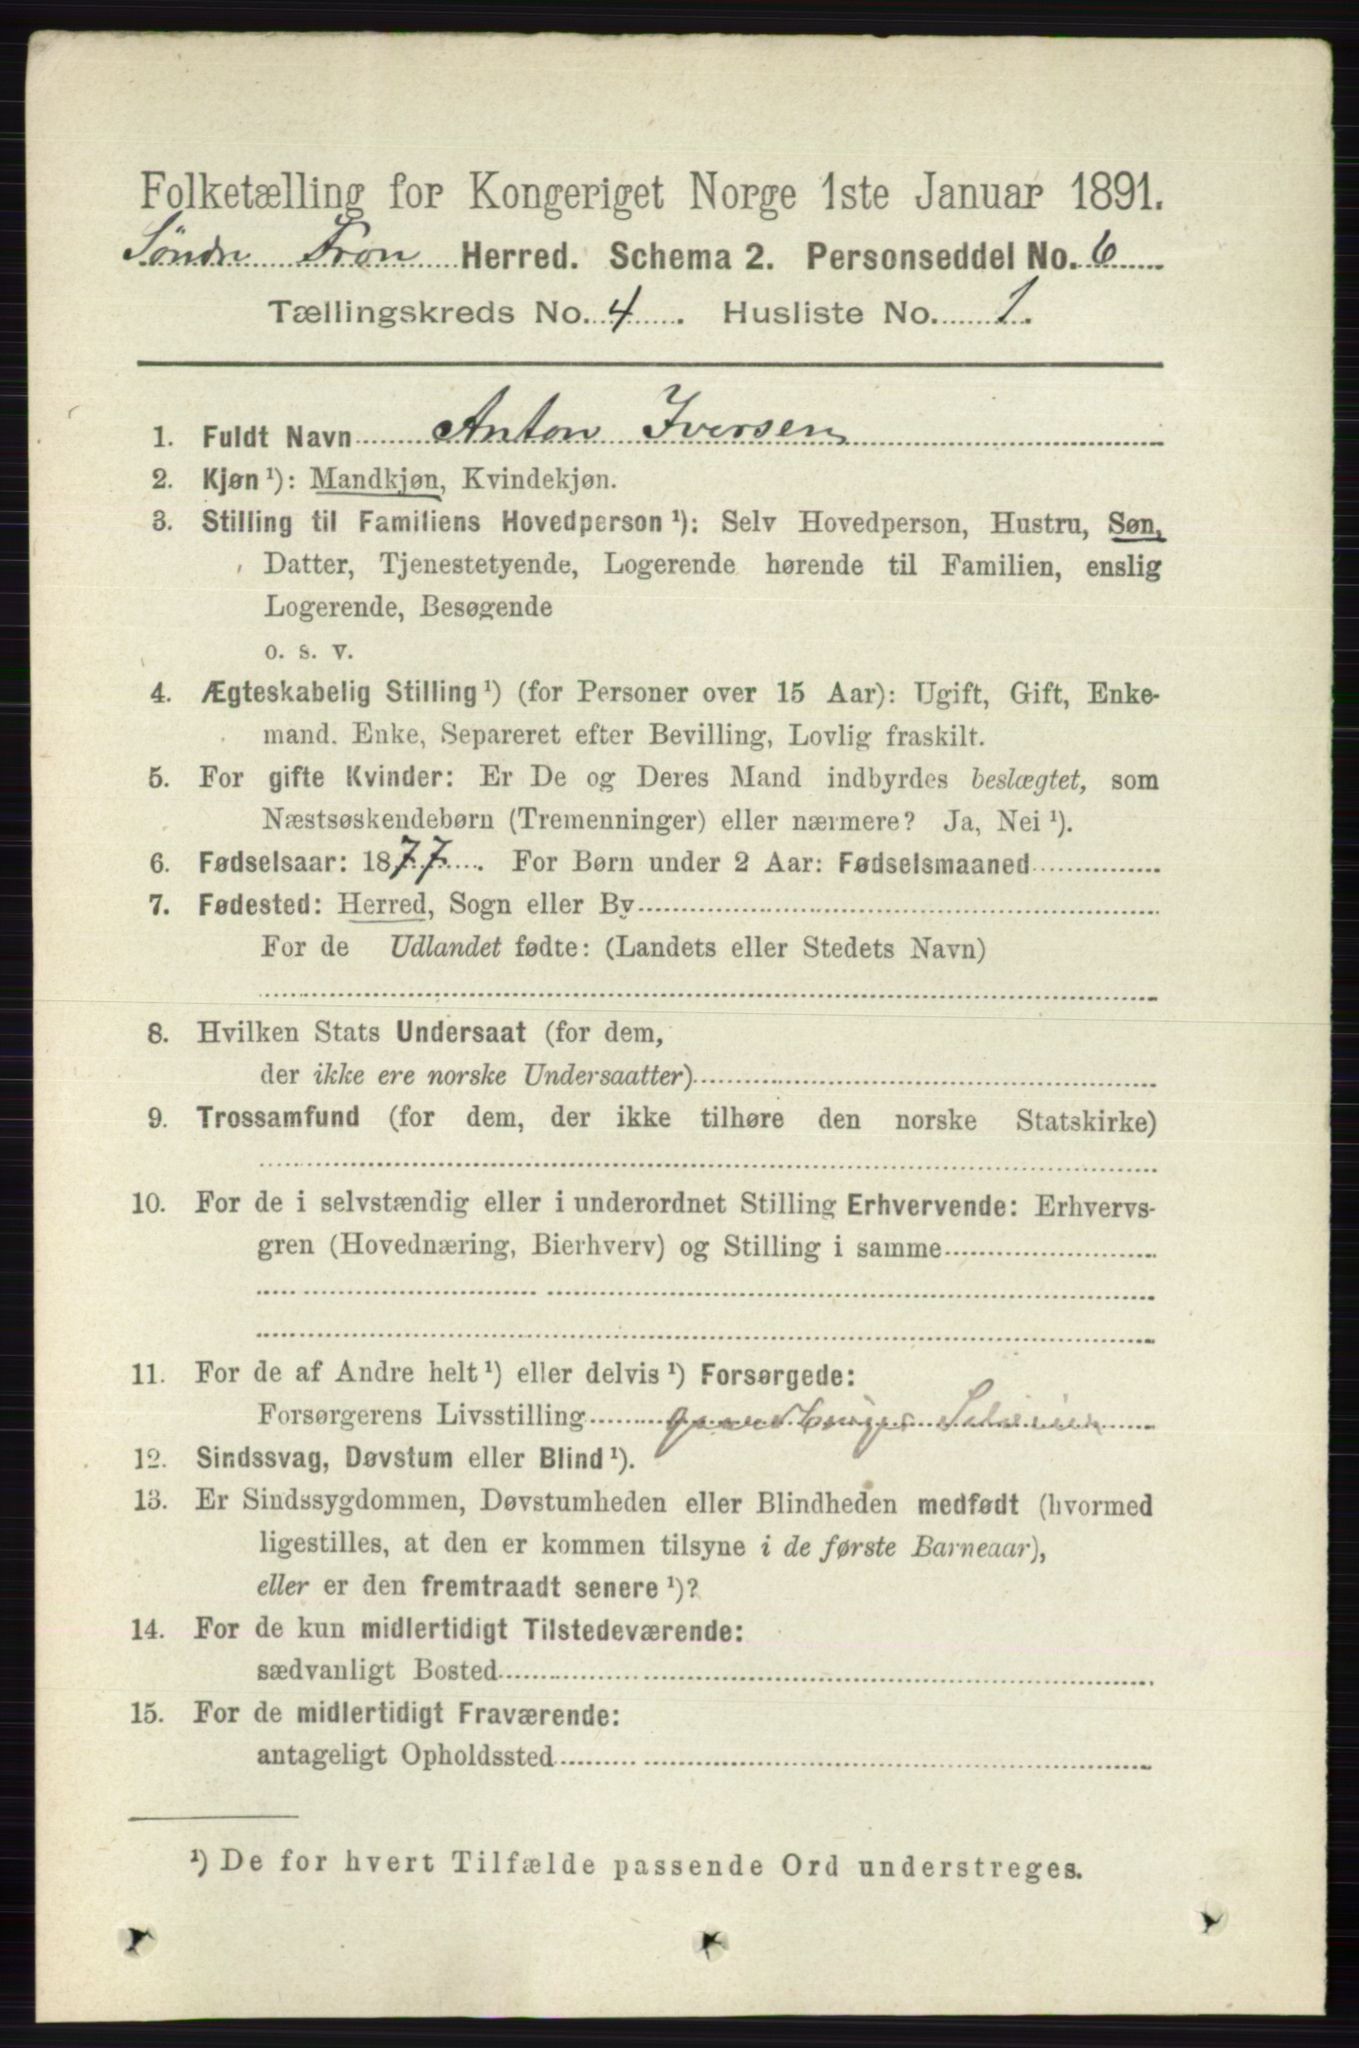 Folketælling for Kongeriget Norge 1ste Januar 1891.
Søndre Fron Herred. Schema 2. Personseddel No. 6
Tællingskreds No. 4. Husliste No. 1.
1. Fuldt Navn Anton Iversen
2. Kjøn¹): Mandkjøn, Kvindekjøn.
3. Stilling til Familiens Hovedperson¹): Selv Hovedperson, Hustru, Søn,
Datter, Tjenestetyende, Logerende hørende til Familien, enslig
Logerende, Besøgende
o. s. v.
4. Ægteskabelig Stilling¹) (for Personer over 15 Aar): Ugift, Gift, Enke-
mand. Enke, Separeret efter Bevilling, Lovlig fraskilt.
5. For gifte Kvinder: Er De og Deres Mand indbyrdes beslægtet, som
Næstsøskendebørn (Tremenninger) eller nærmere? Ja, Nei¹).
6. Fødselsaar: 1877. For Børn under 2 Aar: Fødselsmaaned
7. Fødested: Herred, Sogn eller By
For de Udlandet fødte: (Landets eller Stedets Navn)
8. Hvilken Stats Undersaat (for dem,
der ikke ere norske Undersaatter)
9. Trossamfund (for dem, der ikke tilhøre den norske Statskirke)
10. For de i selvstændig eller i underordnet Stilling Erhvervende: Erhvervs-
gren (Hovednæring, Bierhverv) og Stilling i samme
11. For de af Andre helt¹) eller delvis¹) Forsørgede:
Forsørgerens Livsstilling
12. Sindssvag, Døvstum eller Blind¹).
13. Er Sindssygdommen, Døvstumheden eller Blindheden medfødt (hvormed
ligestilles, at den er kommen tilsyne i de første Barneaar),
eller er den fremtraadt senere¹)?
14. For de kun midlertidigt Tilstedeværende:
sædvanligt Bosted
15. For de midlertidigt Fraværende:
antageligt Opholdssted
¹) De for hvert Tilfælde passende Ord understreges.